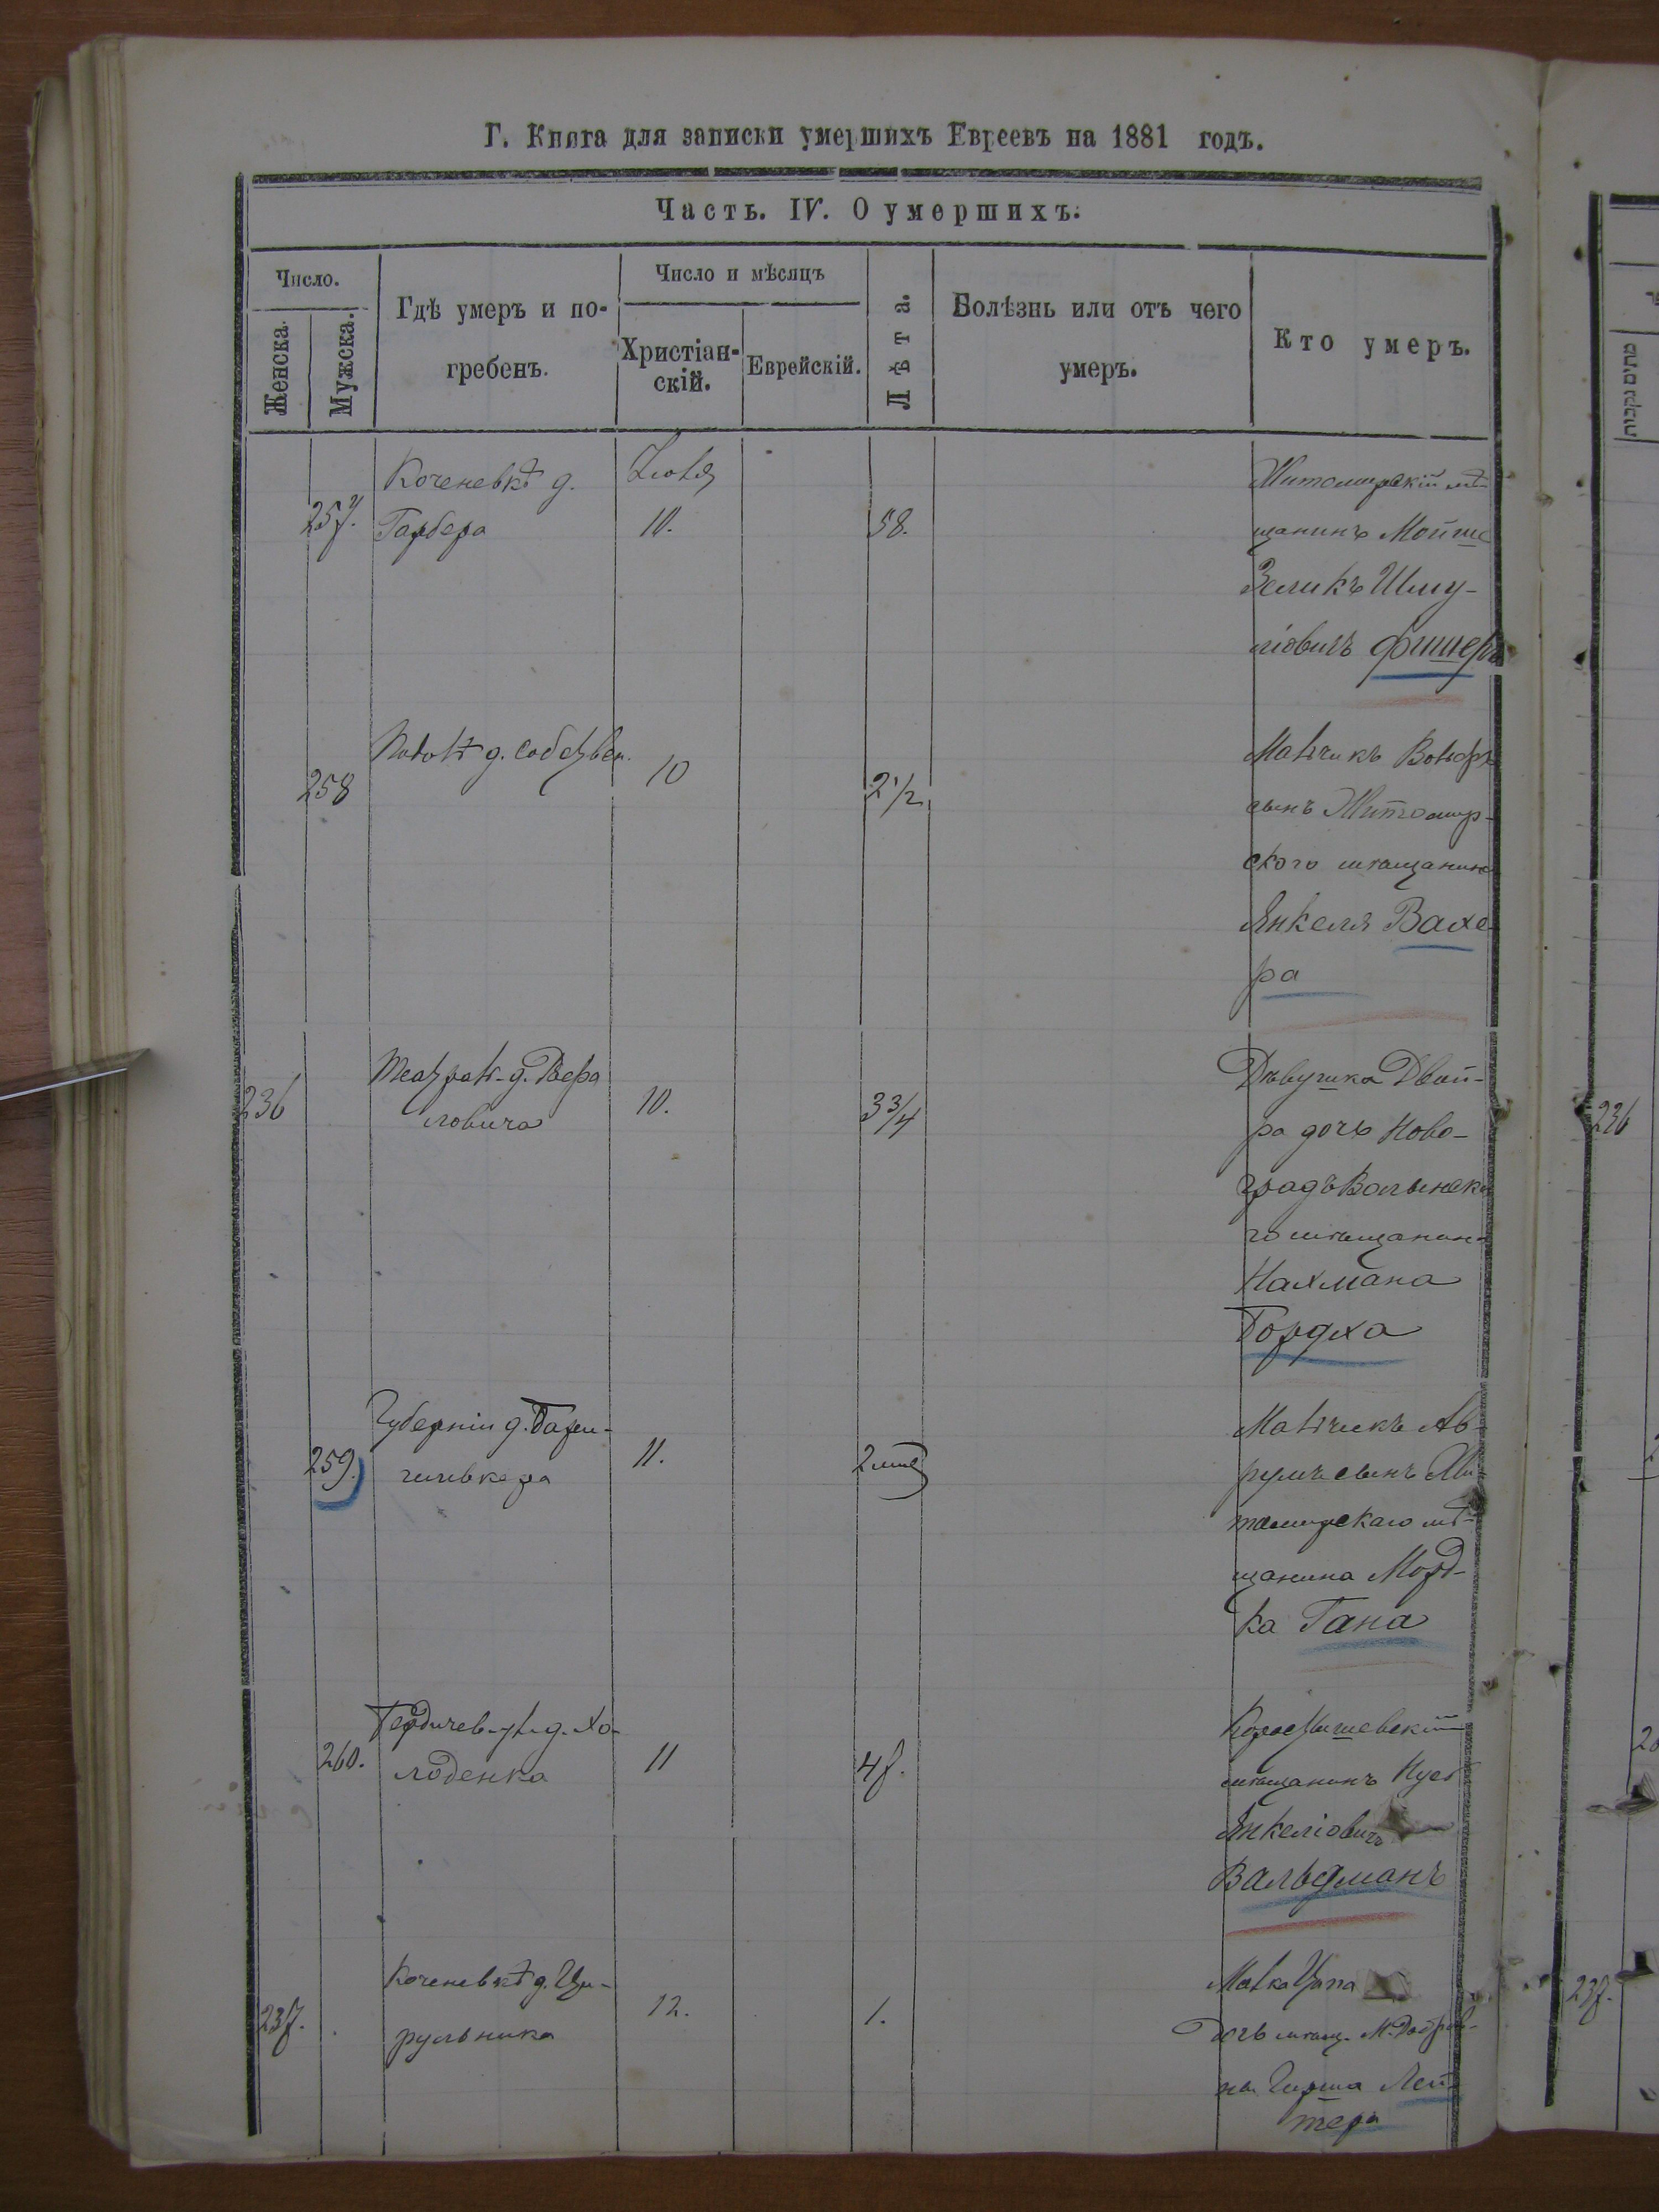 Г. Книга для записки умершихъ Евреевъ на 1881 годъ.
Часть. IV. О умершихъ.
Число.
Женска.
Мужска.
Гдѣ умеръ и по-
гребенъ.
Число и мѣсяцъ
Христіан-
скій.
Еврейскій.
Лѣта.
Болѣзнь или отъ чего
умеръ.
Кто умеръ.
257.
Коченевкѣ д.
Гарбера
Іюля
10.
58.
Житомирскій мѣ-
щанинъ Мойше
Зеликъ Шму-
ліовичъ Фишеръ
258
д. собствен.
10
2 1/2
Мальчикъ Вольфъ
сынъ Житомир-
ского мѣщанина
Янкеля Вахе-
ра
236
Театрал. д.
ловича
10.
3 3/4
Дѣвушка Двой-
ра дочь Ново-
градъ Волынска
го мѣщанин
Нахмана
Бордха
259.
Губерніи д.
11.
2 мѣс
Мальчикъ Ав-
румъ сынъ Жи-
томирскаго мѣ-
щанина Морд-
ка Гана
260.
Бердичев. ул. д. Хо-
лоденка
11
47.
Коростышевскій
мѣщанинъ Нусъ
Янкеліовичъ
Вальдманъ
237.
Коченевкѣ д. Ци-
рульника
12.
1.
Малка
дочь мѣщ. М.
на Гирша Лей-
тера
236
237.